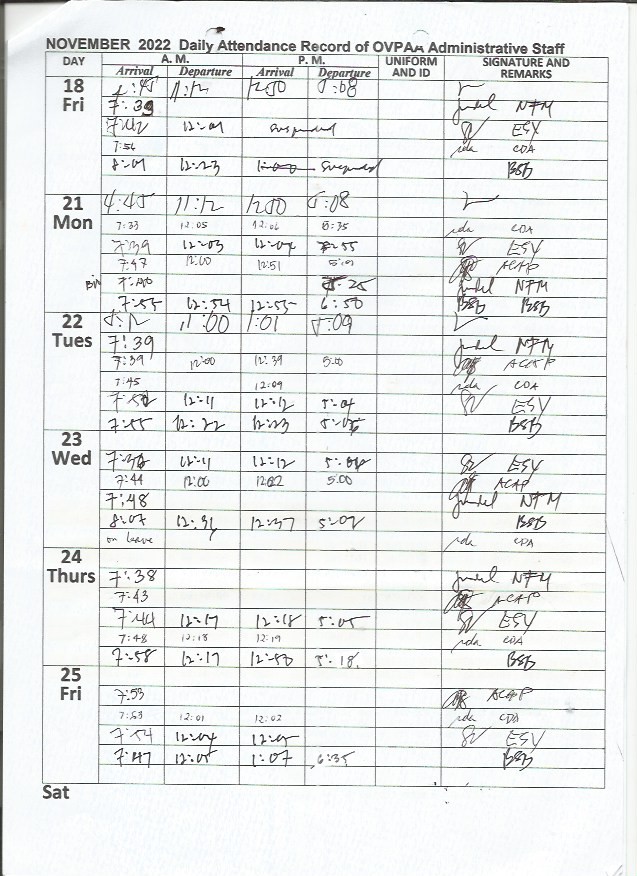 NOVEMBER 2022 Daily Attendance Record of OVPAA Administrative Staff
DAY A. M. P. M. UNIFORM AND ID SIGNATURE AND REMARKS
Arrival Departure Arrival Departure
18 Fri 4:45 11:12 1:08
7:39 NFM
7:42 12:01 suspended ESY
7:56 CDA
8:01 12:23 suspended BSB
21 Mon 4:45 11:12 5:08
7:33 12:05 12:06 5:35 CDA
7:39 12:03 12:04 ESY
7:47 12:00 12:51 ACAP
NFM
7:55 12:54 12:55 6:50 BSB BSB
22 Tues 5:12 11:00 1:01 5:09
7:39 NFM
7:39 12:00 12:39 5:00 ACAP
7:45 12:09 CDA
12:11 12:12 5:04 ESY
7:55 12:22 12:23 BSB
23 Wed 12:11 12:12 ESY
7:44 12:00 5:00 ACAP
7:48 NFM
8:07 12:36 12:37 5:02 BSB
on leave CDA
24 Thurs 7:38 NFM
7:43 ACAP
7:44 12:17 12:18 5:05 ESY
7:48 12:18 12:19 CDA
7:58 12:17 12:50 5:18 BSB
25 Fri
7:53 ACAP
7:53 12:01 12:02 CDA
7:54 12:04 12:05 ESY
7:47 12:05 1:07 6:35 BSB
Sat